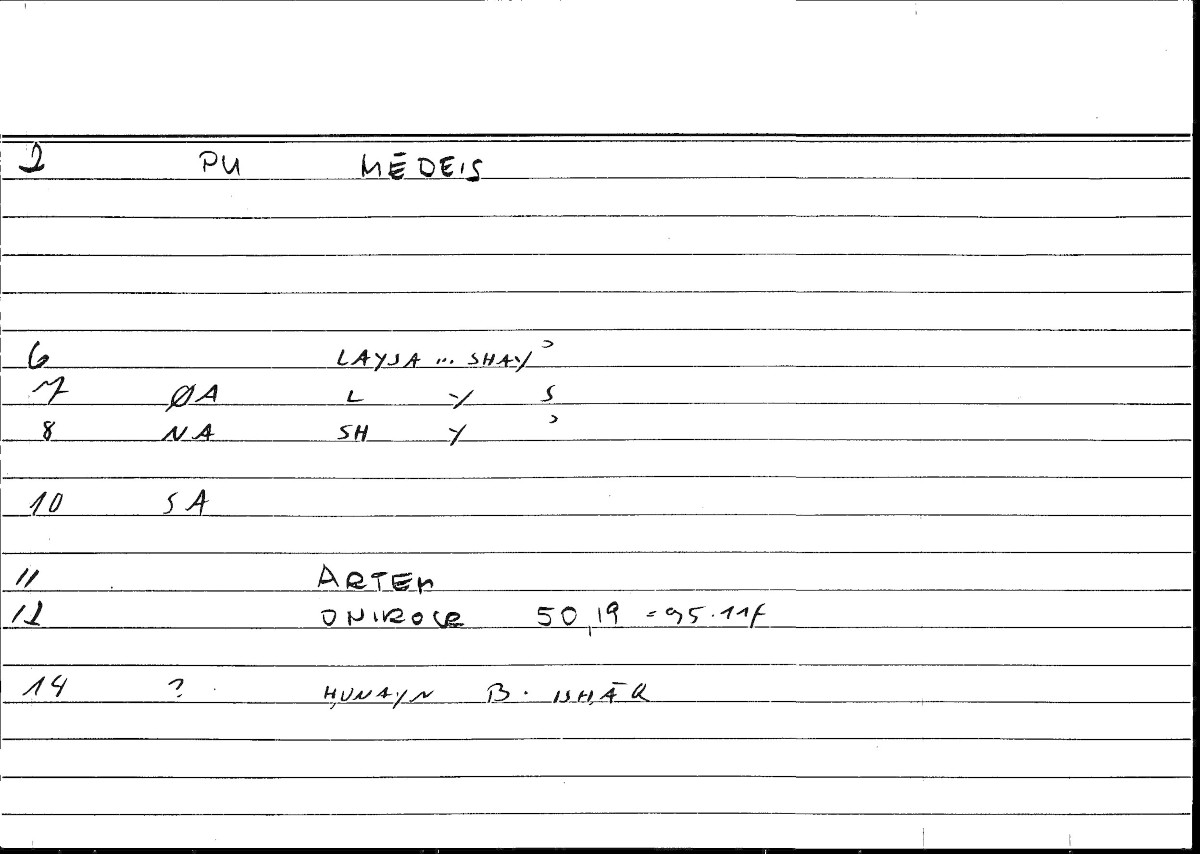 2 PU MĒDEIS
6 LAYSA ... SHAYʾ
7 ØA L Y S
8 NA SH Y ʾ
10 SA
11 ARTEM
12 ONIROCR 50,19 = 95.11f
14 ? ḤUNAYN B. ISḤĀQ